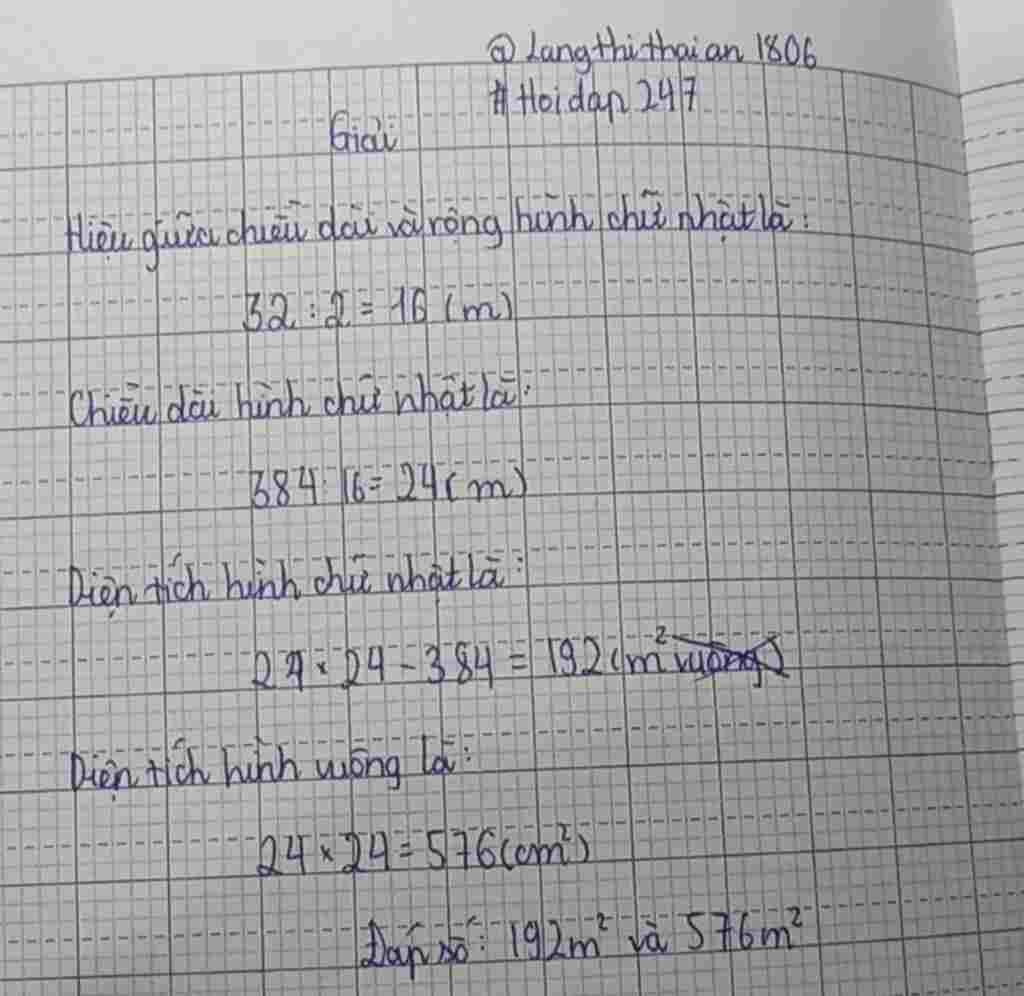 @ Langthithaian 1806
# Hoidap 247
Giải
Hiệu giữa chiều dài và rộng hình chữ nhật là:
32 : 2 = 16 (m)
Chiều dài hình chữ nhật là:
384 : 16 = 24 (m)
Diện tích hình chữ nhật là:
24 × 24 - 384 = 192 (m²
Diện tích hình vuông là:
24 × 24 = 576 (cm²)
Đáp số: 192m² và 576m²